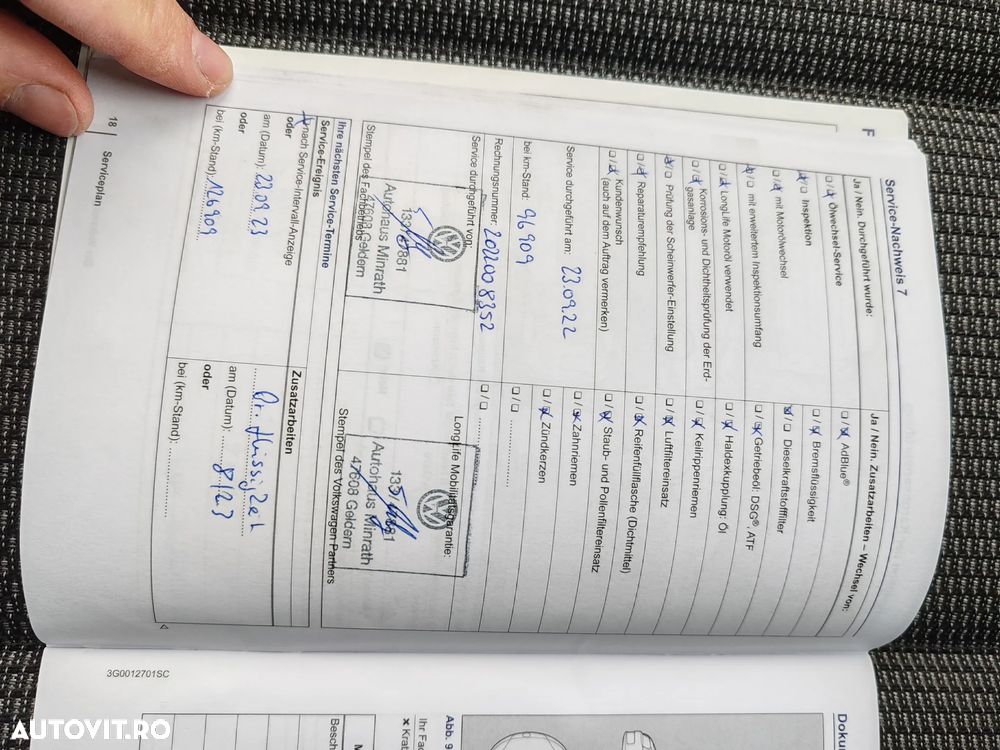 Service-Nachweis 7
Ja / Nein. Durchgeführt wurde:
Ölwechsel-Service
Inspektion
mit Motorölwechsel
mit erweitertem Inspektionsumfang
LongLife Motoröl verwendet
Korrosions- und Dichtheitsprüfung der Erd-
gasanlage
Prüfung der Scheinwerfer-Einstellung
Reparaturempfehlung
Kundenwunsch
(auch auf dem Auftrag vermerken)
Service durchgeführt am: 23.09.22
bei km-Stand: 96909
Rechnungsnummer: 2022008352
Service durchgeführt von:
Autohaus Minrath
47608 Geldern
Stempel des Fachbetriebs
Ja / Nein. Zusatzarbeiten – Wechsel von:
AdBlue®
Bremsflüssigkeit
Dieselkraftstofffilter
Getriebeöl: DSG®, ATF
Haldexkupplung: Öl
Keilrippenriemen
Luftfiltereinsatz
Reifenfüllflasche (Dichtmittel)
Staub- und Pollenfiltereinsatz
Zahnriemen
Zündkerzen
LongLife Mobilitätsgarantie:
Autohaus Minrath
47608 Geldern
Stempel des Volkswagen Partners
Ihre nächsten Service-Termine
Service-Ereignis
nach Service-Intervall-Anzeige
oder
am (Datum): 23.09.23
oder
bei (km-Stand): 126909
Zusatzarbeiten
am (Datum): 8/23
oder
bei (km-Stand):
18 | Serviceplan
3G0012701SC
F
Doku
Abb. 9
Ihr Fa
Krat
Besch
AUTOVIT.RO